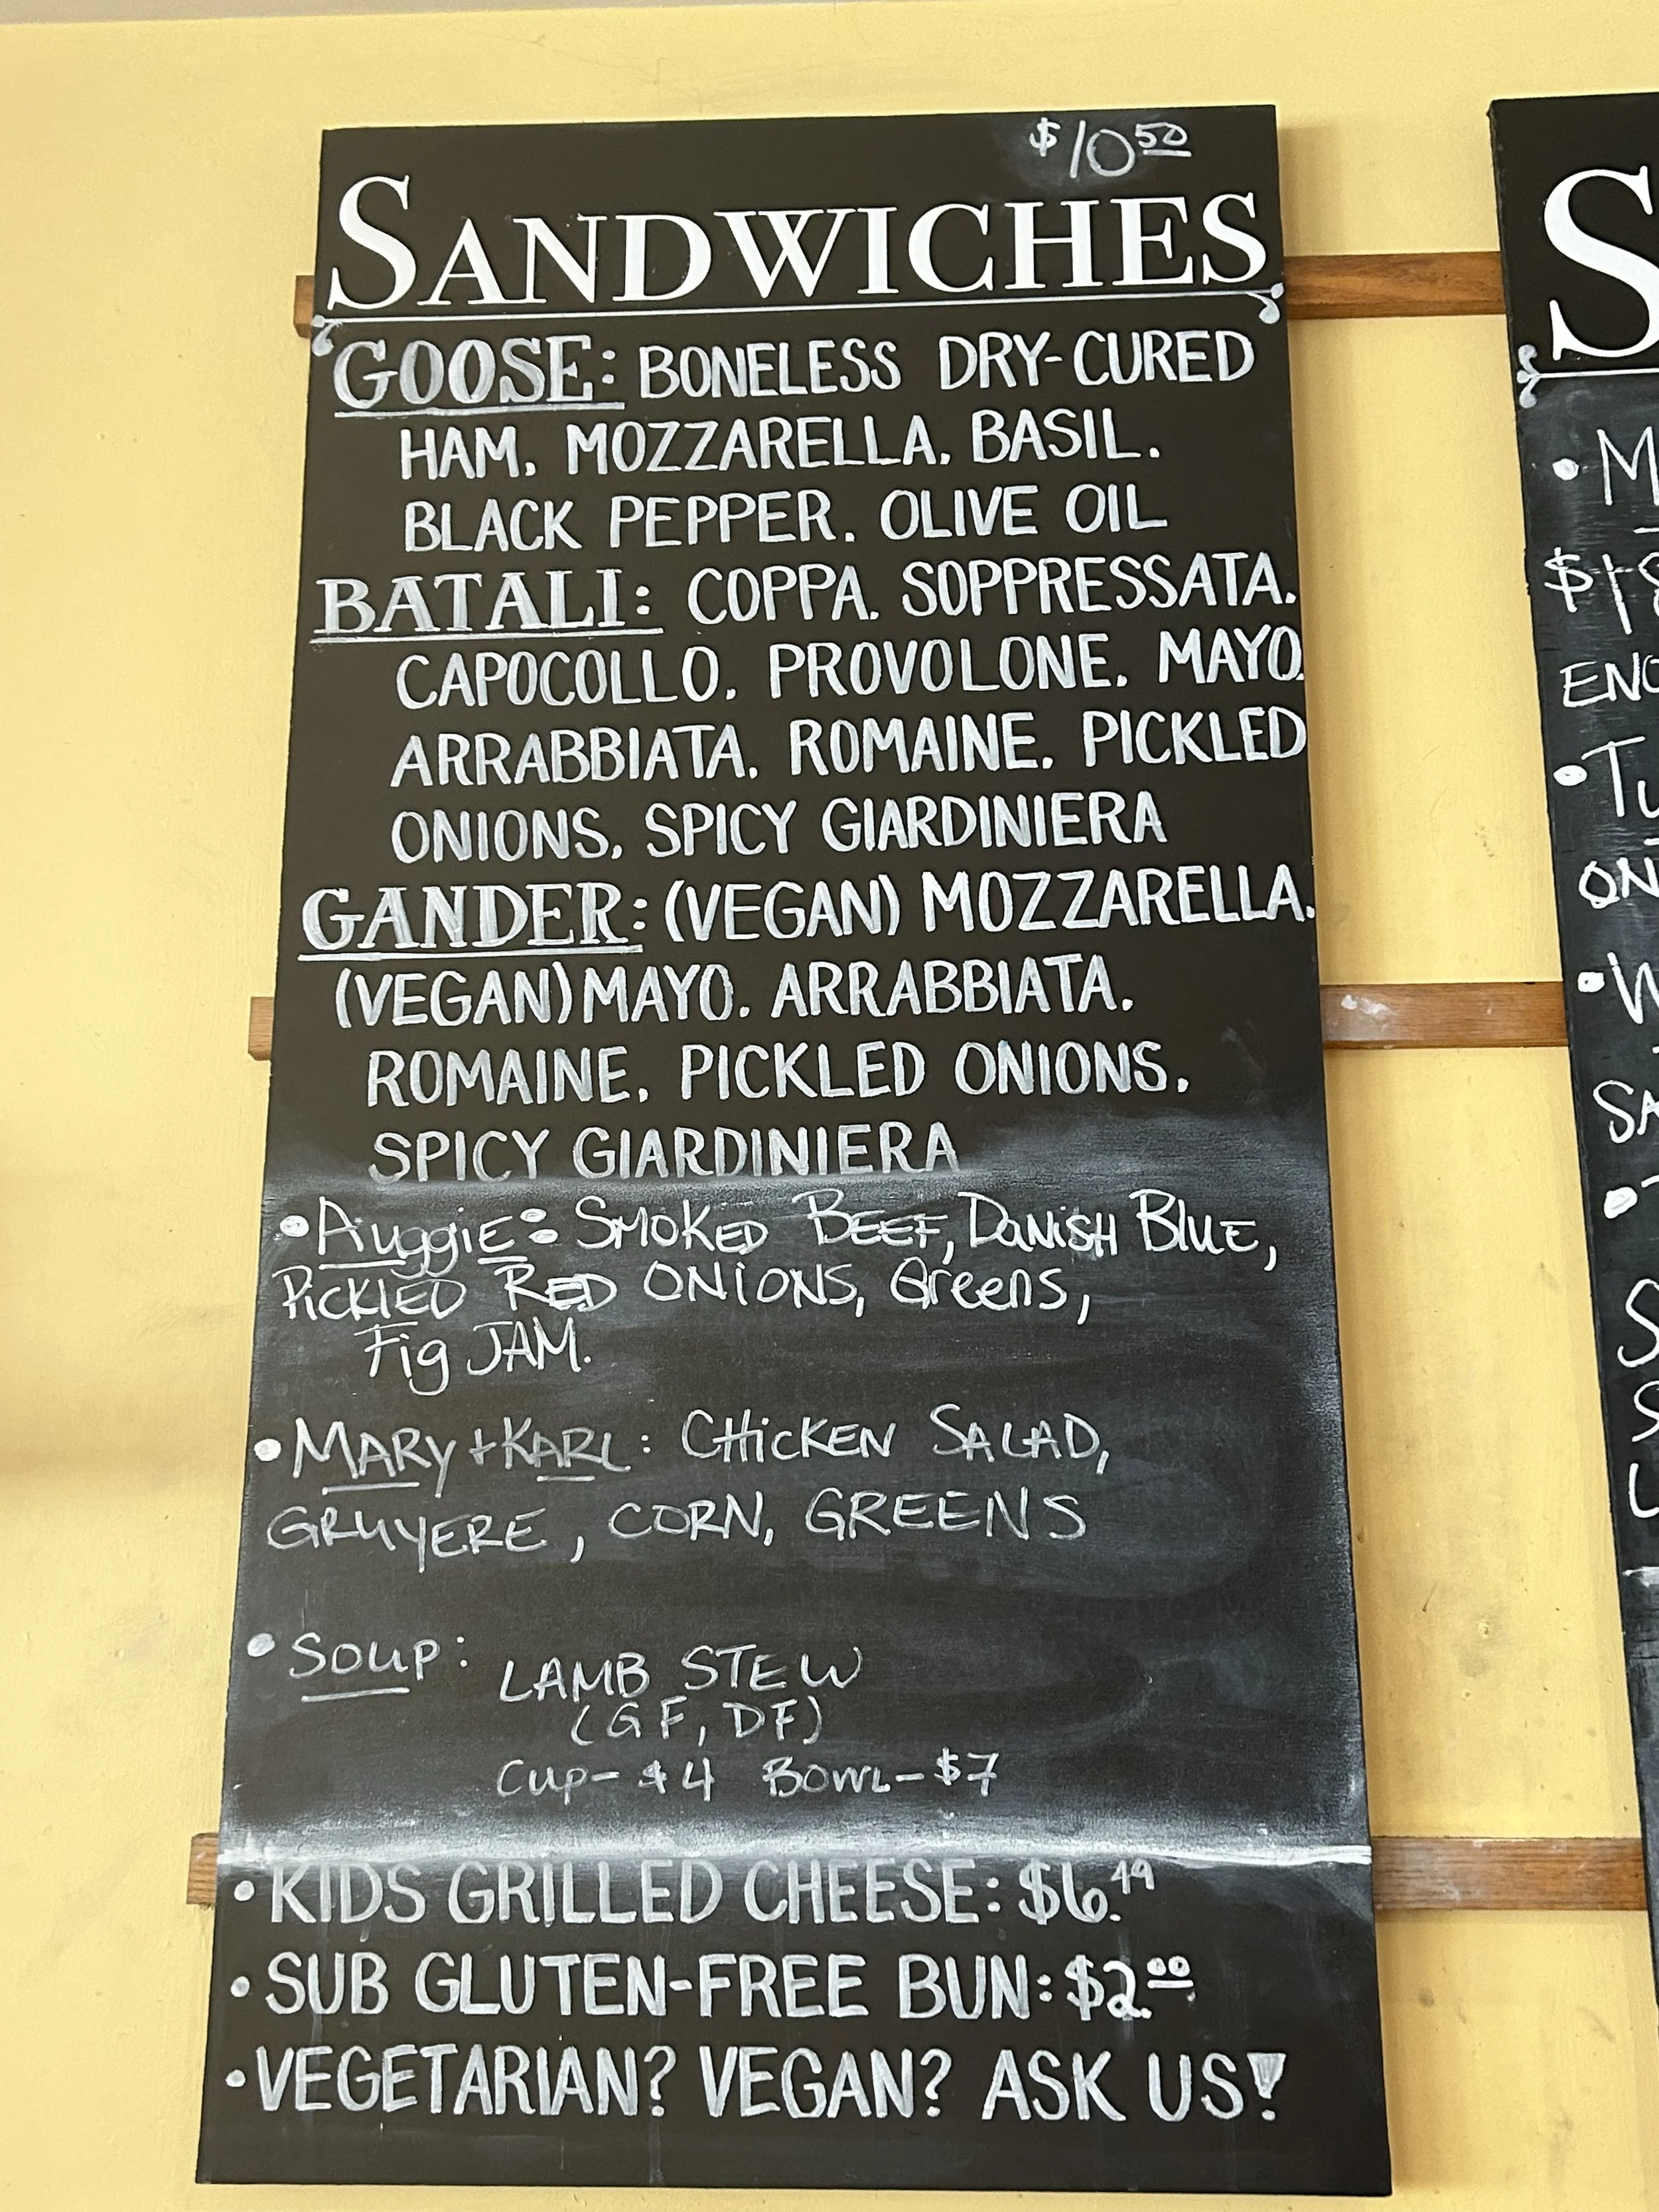 $10 50
SANDWICHES
GOOSE: BONELESS DRY-CURED
HAM. MOZZARELLA. BASIL.
BLACK PEPPER. OLIVE OIL
BATALI: COPPA. SOPPRESSATA.
CAPOCOLLO. PROVOLONE. MAYO.
ARRABBIATA. ROMAINE. PICKLED
ONIONS. SPICY GIARDINIERA
GANDER: (VEGAN) MOZZARELLA.
(VEGAN) MAYO. ARRABBIATA.
ROMAINE. PICKLED ONIONS.
SPICY GIARDINIERA
• AuggiE: SMOKED BEEF, DANiSH BLUE,
PiCKLED RED ONIONS, Greens,
Fig JAM.
• MARy + KARL: CHicKEN SALAD,
GRUYERE, CORN, GREENS
• SOUP: LAMB STEW
(GF, DF)
Cup- $4 BOWL- $7
• KIDS GRILLED CHEESE: $6.49
• SUB GLUTEN-FREE BUN: $2.00
• VEGETARIAN? VEGAN? ASK US!
S
• M
$18
• Tu
ON
• W
SA
• T
S
S
L